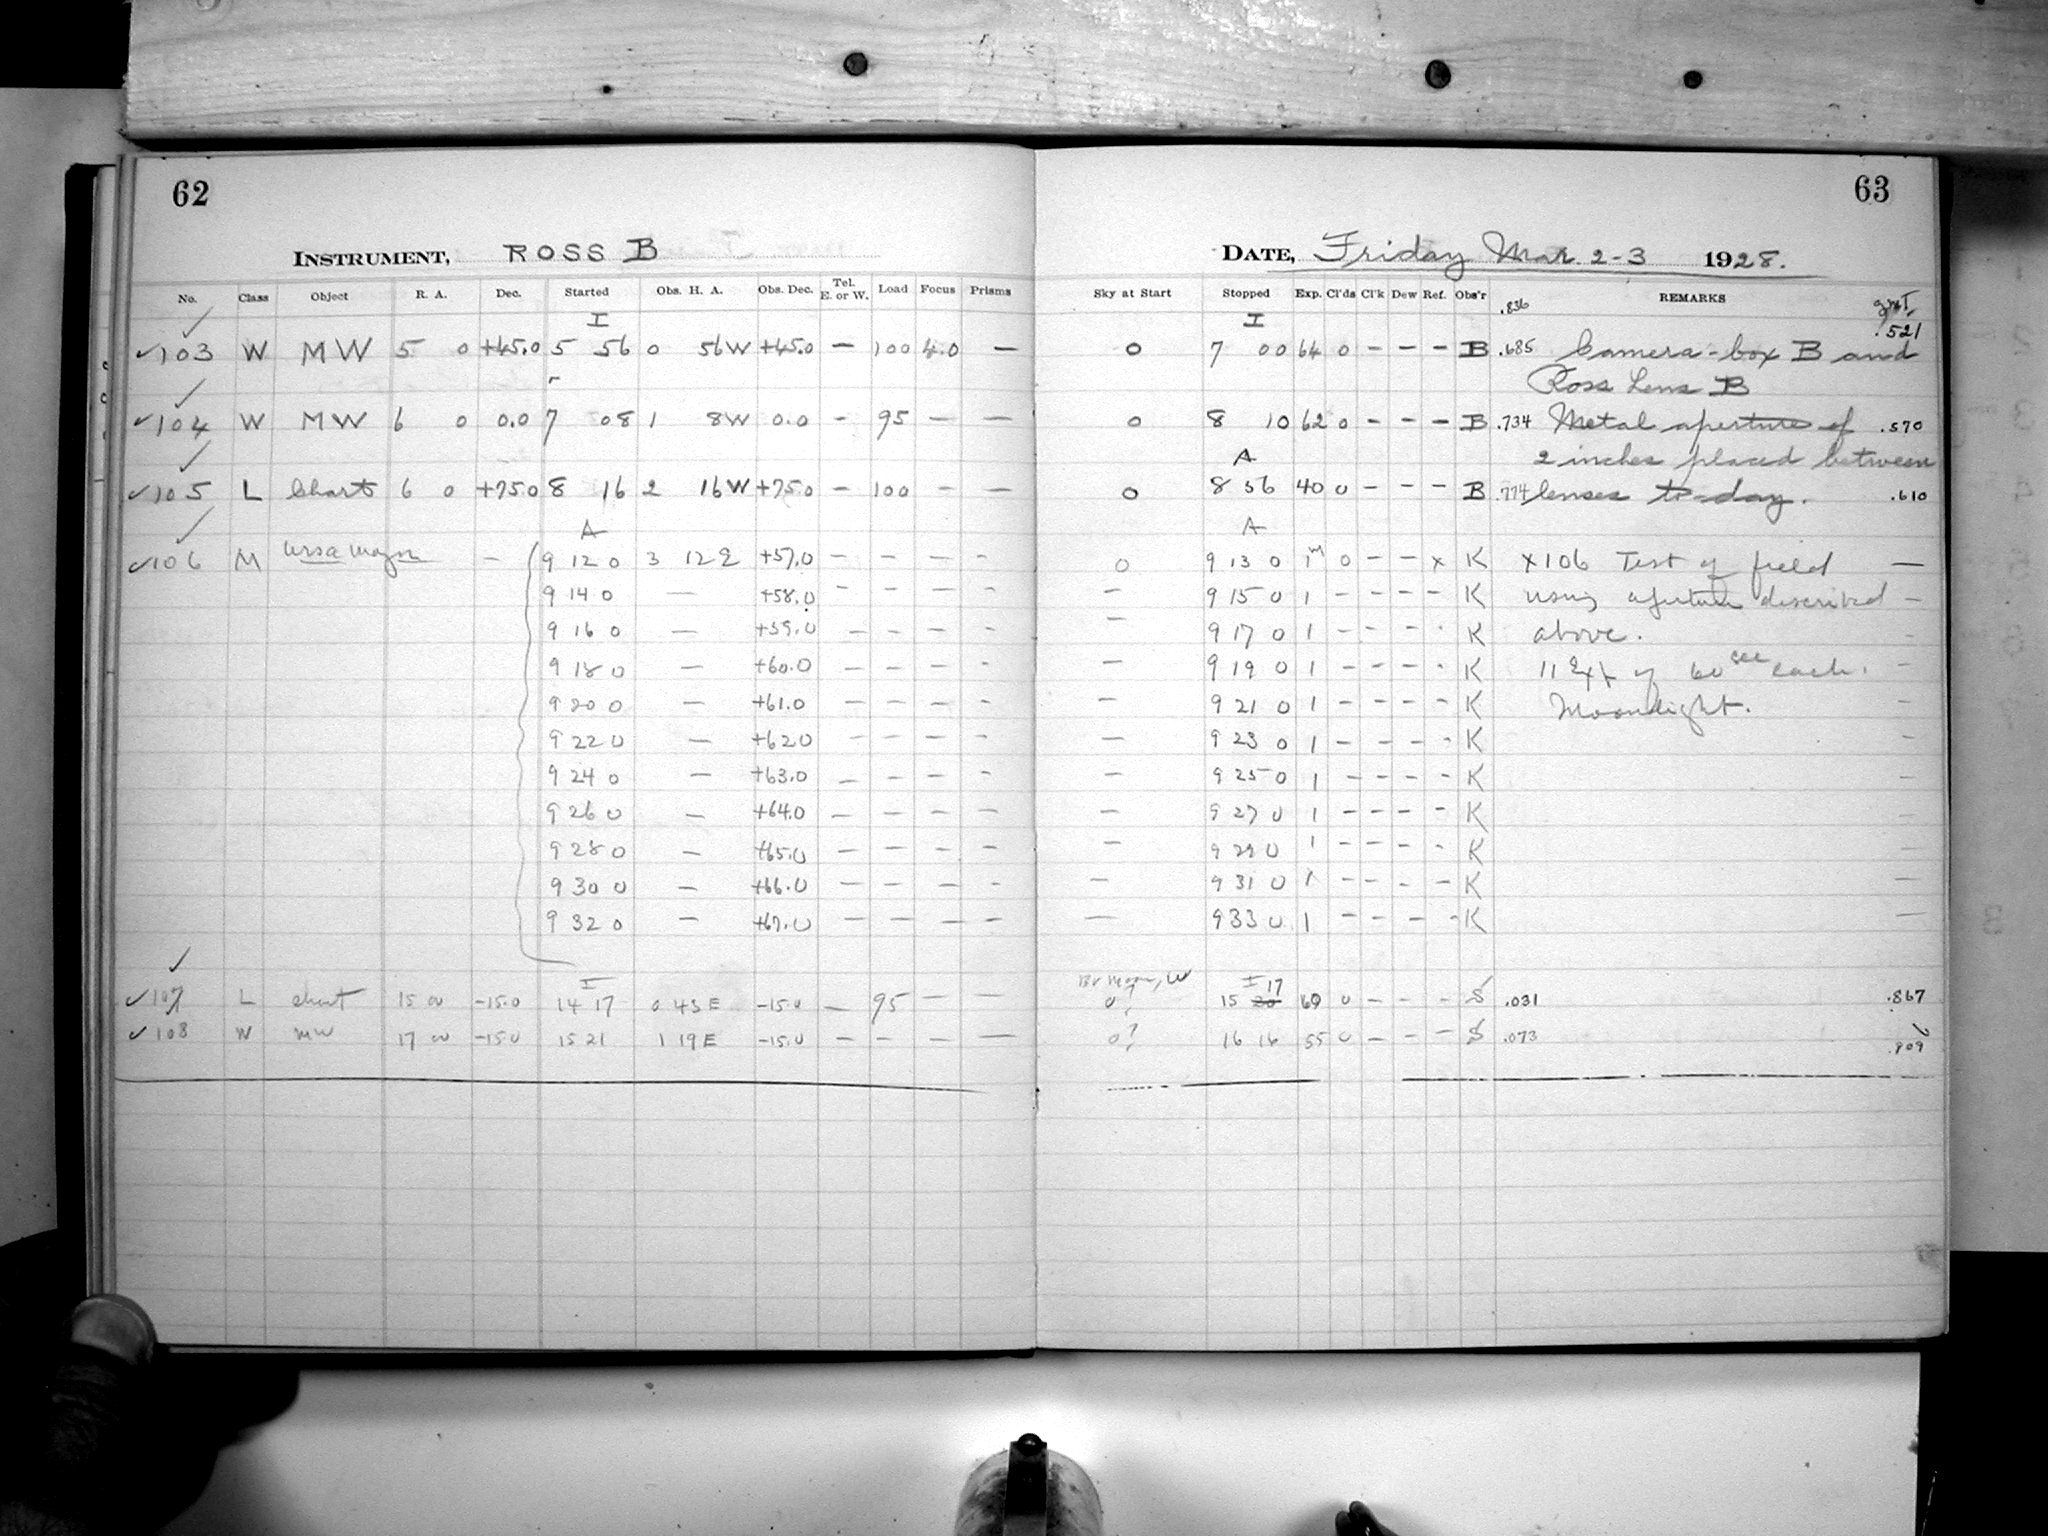 62
63
INSTRUMENT, ROSS B
DATE, Friday Mar. 2-3 1928.
No. Class Object R. A. Dec. Started Obs. H. A. Obs. Dec. Tel. E. or W. Load Focus Prisms Sky at Start Stopped Exp. Cl'ds Cl'k Dew Ref. Obs'r REMARKS
.836 GMT
I I .521
✓103 W MW 5 0 +45.0 5 56 0 56W +45.0 — 100 4.0 — 0 7 00 64 0 — — — B .685 Camera-box B and
Ross Lens B
✓104 W MW 6 0 0.0 7 08 1 8W 0.0 — 95 — — 0 8 10 62 0 — — — B .734 Metal aperture of .570
A 2 inches placed between
✓105 L Chart 6 0 +75.0 8 16 2 16W +75.0 — 100 — — 0 8 56 40 0 — — — B .774 lenses to-day. .610
A A
✓106 M Ursa Major — 9 12 0 3 12 E +57.0 — — — — 0 9 13 0 1m 0 — — x K x106 Test of field —
9 14 0 — +58.0 — — — — — 9 15 0 1 — — — — K using aperture described —
9 16 0 — +59.0 — — — — — 9 17 0 1 — — — — K above. —
9 18 0 — +60.0 — — — — — 9 19 0 1 — — — — K 11 Exp of 60 sec each. —
9 20 0 — +61.0 — — — — — 9 21 0 1 — — — — K Moonlight. —
9 22 0 — +62.0 — — — — — 9 23 0 1 — — — — K —
9 24 0 — +63.0 — — — — — 9 25 0 1 — — — — K —
9 26 0 — +64.0 — — — — — 9 27 0 1 — — — — K —
9 28 0 — +65.0 — — — — — 9 29 0 1 — — — — K —
9 30 0 — +66.0 — — — — — 9 31 0 1 — — — — K —
9 32 0 — +67.0 — — — — — 9 33 0 1 — — — — K —
I Br Moon, W I 17
✓107 L chart 15 00 -15.0 14 17 0 43 E -15.0 — 95 — — 0? 15 20 60 0 — — — S .031 .867
✓108 W MW 17 00 -15.0 15 21 1 19 E -15.0 — — — — 0? 16 16 55 0 — — — S .073 .909